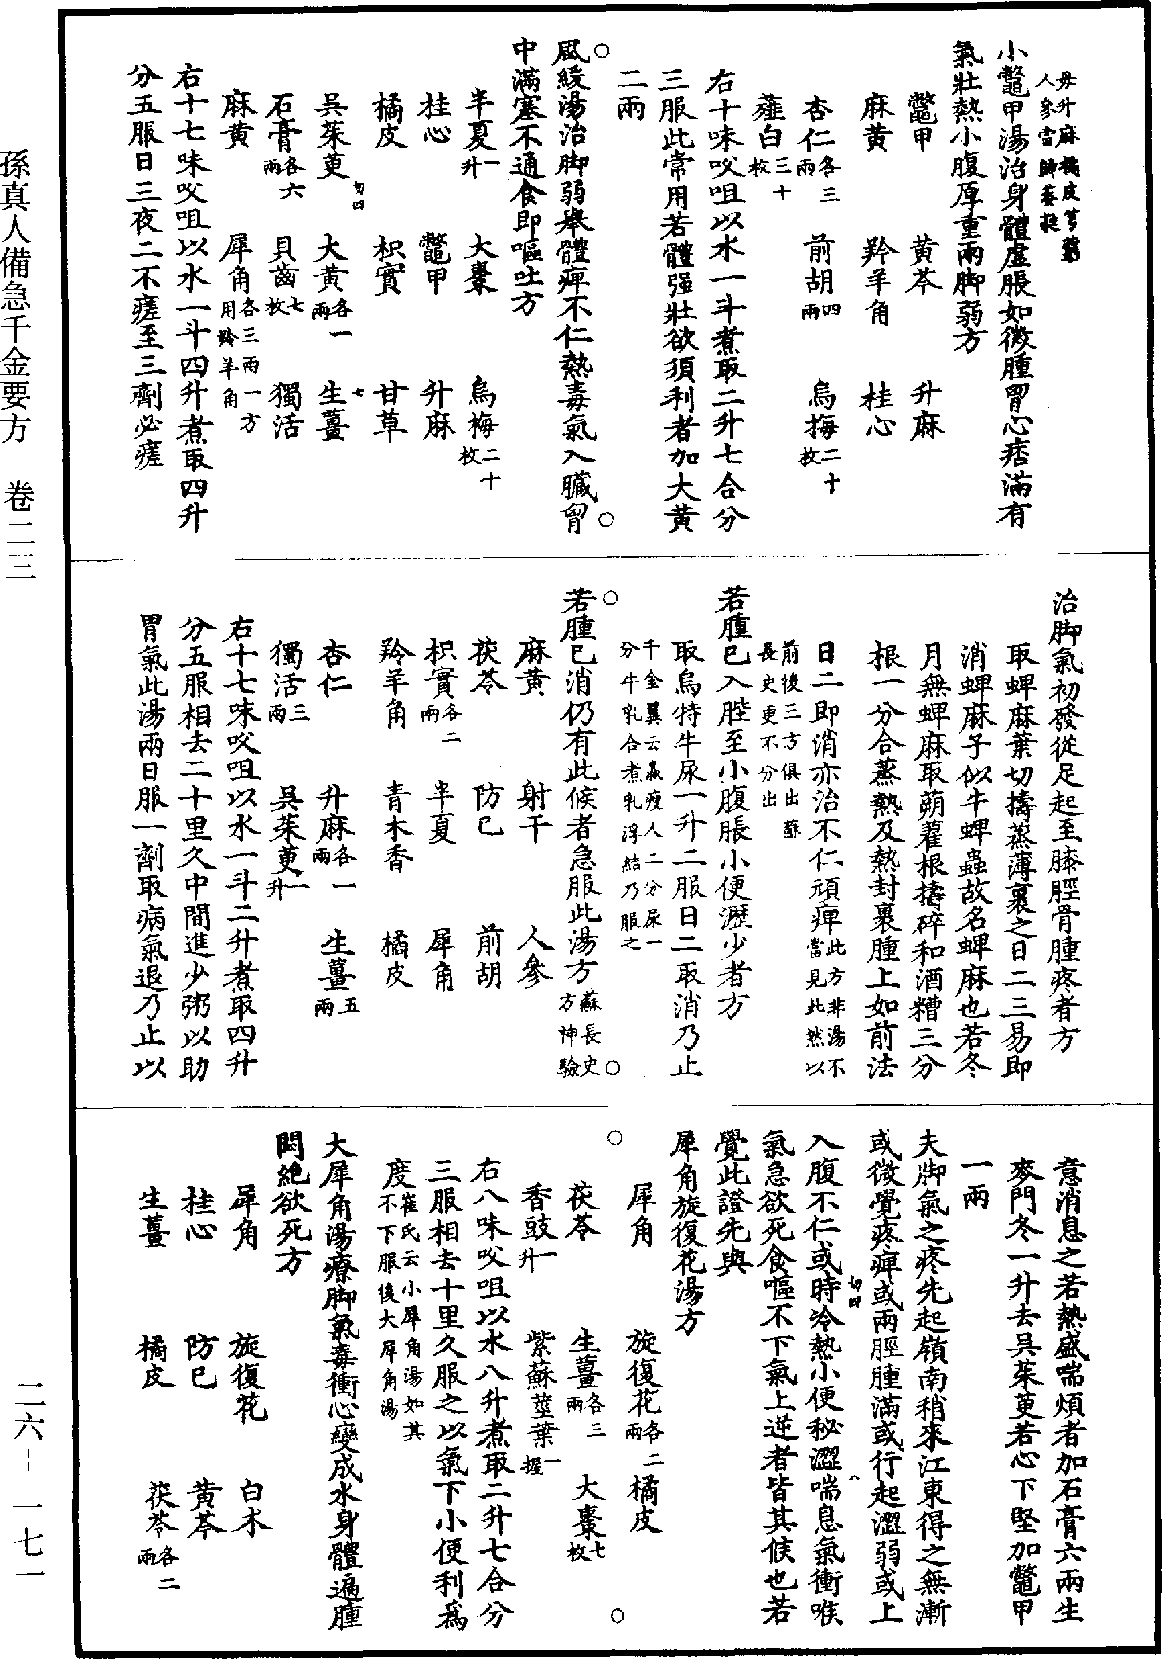 毋升麻橘皮芎藭
人參當歸萎
小鼈甲湯治身體虛脹如微腫胃心痞滿有
氣壯熱小腹厚重兩脚弱方
鼈甲　黄芩　升麻
麻黄　羚羊角　桂心
杏仁各三兩　前胡四兩　烏梅二十枚
薤白三十枚
右十味㕮咀以水一斗煮取二升七合分
三服此常用若體强壯欲須利者加大黄
二兩
風緩湯治脚弱舉體痺不仁熱毒氣入臟胷
中滿塞不通食即嘔吐方
半夏一升　大棗　烏梅二十枚
桂心　鼈甲　升麻
橘皮　枳實　甘草
吳茱萸　大黄各一兩　生薑
石膏各六兩　貝齒七枚　獨活
麻黄　犀角各三兩一方用羚羊角
右十七味㕮咀以水一斗四升煮取四升
分五服日三夜二不瘥至三劑必瘥
治脚氣初發從足起至膝脛骨腫疼者方
取蜱麻葉切擣蒸薄裹之日二三易即
消蜱麻子似牛蜱蟲故名蜱麻也若冬
月無蜱麻取蒴藋根擣碎和酒糟三分
根一分合蒸熱及熱封裹腫上如前法
日二即消亦治不仁頑痺此方非湯不當見此然以
前後三方俱出蘇長史更不分出
若腫已入䏶至小腹脹小便瀝少者方
取烏特牛尿一升二服日二取消乃止
千金翼云羸瘦人二分尿一分牛乳合煮乳浮結乃服之
若腫已消仍有此候者急服此湯方蘇長史方神驗
麻黄　射干　人參
茯苓　防已　前胡
枳實各二兩　半夏　犀角
羚羊角　青木香　橘皮
杏仁　升麻各一兩　生薑五兩
獨活三兩　吳茱萸一升
右十七味㕮咀以水一斗二升煮取四升
分五服相去二十里久中間進少粥以助
胃氣此湯兩日服一劑取病氣退乃止以
意消息之若熱盛喘煩者加石膏六兩生
麥門冬一升去吳茱萸若心下堅加鼈甲
一兩
夫脚氣之疼先起嶺南稍來江東得之無漸
或微覺疼痺或兩脛腫滿或行起澀弱或上
入腹不仁或時冷熱小便秘澀喘息氣衝喉
氣急欲死食嘔不下氣上逆者皆其候也若
覺此證先與
犀角旋復花湯方
犀角　旋復花各二兩　橘皮
茯苓　生薑各三兩　大棗七枚
香豉一升　紫蘇莖葉一握
右八味㕮咀以水八升煮取二升七合分
三服相去十里久服之以氣下小便利爲
度崔氏云小犀角湯如其不下服後大犀角湯
大犀角湯療脚氣毒衝心變成水身體遍腫
悶絶欲死方
犀角　旋復花　白朮
桂心　防已　黄芩
生薑　橘皮　茯苓各二兩
孫真人備急千金要方　卷二三
二六－一七一